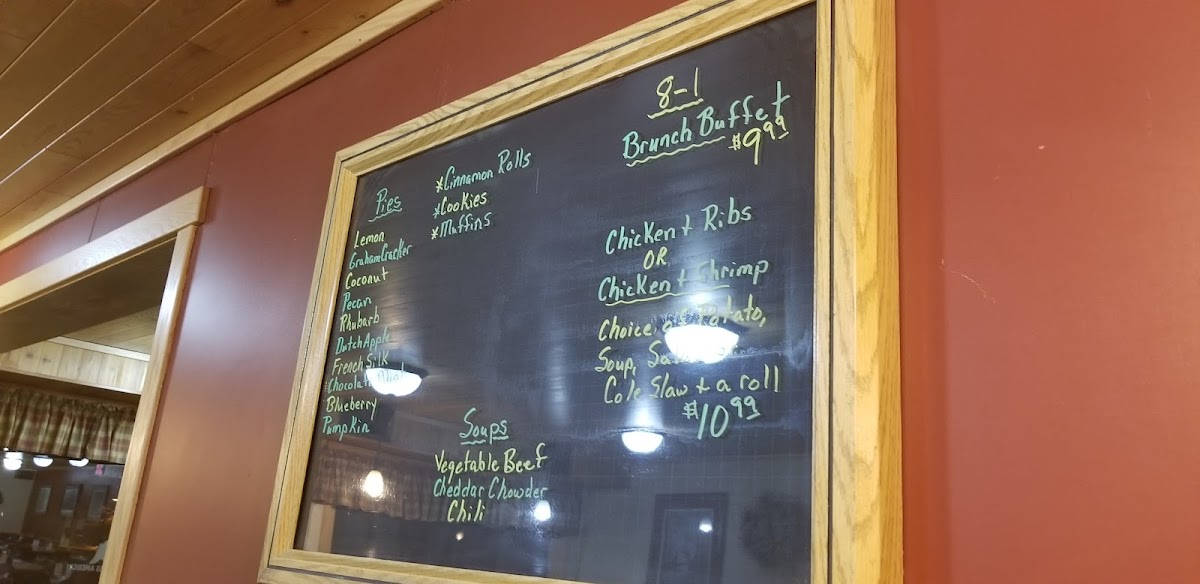 Pies
Lemon
Graham Cracker
Coconut
Pecan
Rhubarb
Dutch Apple
French Silk
Blueberry
Pumpkin
*Cinnamon Rolls
*Cookies
*Muffins
Soups
Vegetable Beef
Cheddar Chowder
Chili
8-1
Brunch Buffet
$9.99
Chicken + Ribs
OR
Chicken + Shrimp
Choice of Potato,
Soup,
Cole Slaw + a roll
$10.99